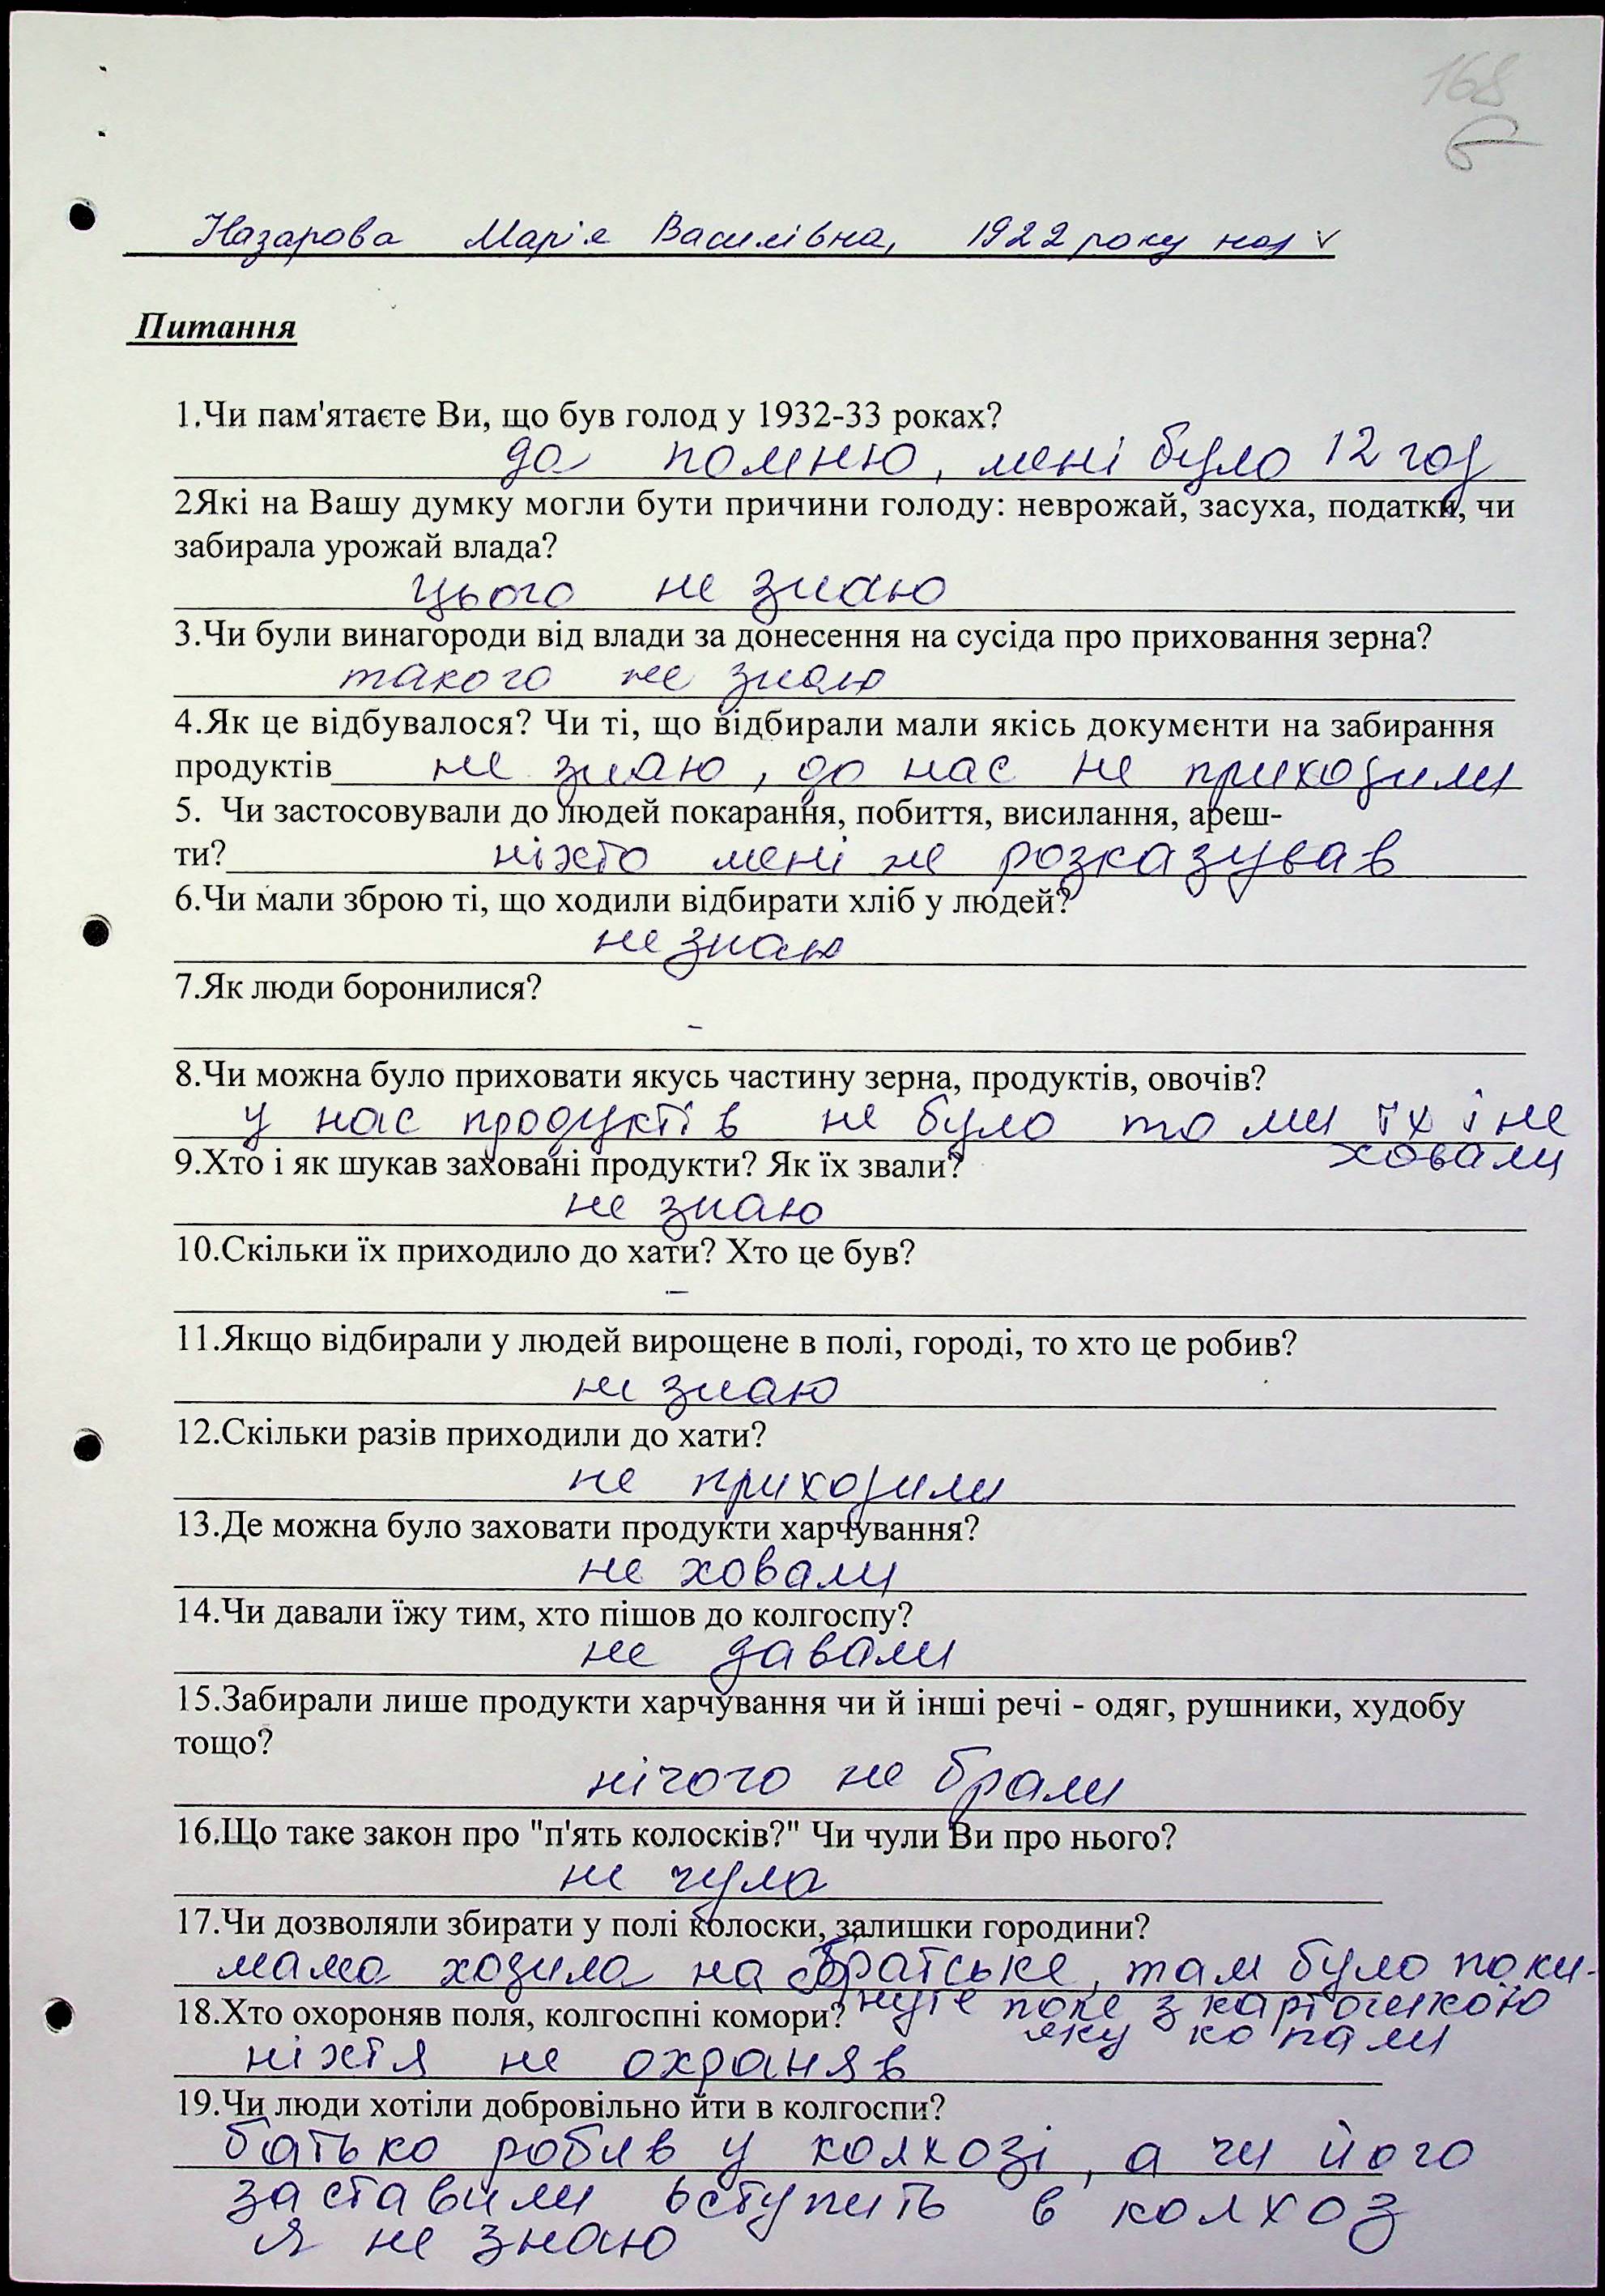 168
Назарова Марія Василівна, 1922 року нар
Питання
1.Чи пам'ятаєте Ви, що був голод у 1932-33 роках?
да помню, мені було 12 год
2Які на Вашу думку могли бути причини голоду: неврожай, засуха, податки, чи
забирала урожай влада?
цього не знаю
3.Чи були винагороди від влади за донесення на сусіда про приховання зерна?
такого не знаю
4.Як це відбувалося? Чи ті, що відбирали мали якісь документи на забирання
продуктів не знаю, до нас не приходили
5. Чи застосовували до людей покарання, побиття, висилання, ареш-
ти? ніхто мені не розказував
6.Чи мали зброю ті, що ходили відбирати хліб у людей?
не знаю
7.Як люди боронилися?
-
8.Чи можна було приховати якусь частину зерна, продуктів, овочів?
у нас продуктів не було то ми їх і не
ховали
9.Хто і як шукав заховані продукти? Як їх звали?
не знаю
10.Скільки їх приходило до хати? Хто це був?
-
11.Якщо відбирали у людей вирощене в полі, городі, то хто це робив?
не знаю
12.Скільки разів приходили до хати?
не приходили
13.Де можна було заховати продукти харчування?
не ховали
14.Чи давали їжу тим, хто пішов до колгоспу?
не давали
15.Забирали лише продукти харчування чи й інші речі - одяг, рушники, худобу
тощо?
нічого не брали
16.Що таке закон про "п'ять колосків?" Чи чули Ви про нього?
не чула
17.Чи дозволяли збирати у полі колоски, залишки городини?
мама ходила на Братське, там було поки-
нуте поле з картошкою
яку копали
18.Хто охороняв поля, колгоспні комори?
ніхтя не охраняв
19.Чи люди хотіли добровільно йти в колгоспи?
батько робив у колхозі, а чи його
заставили вступить в колхоз
я не знаю